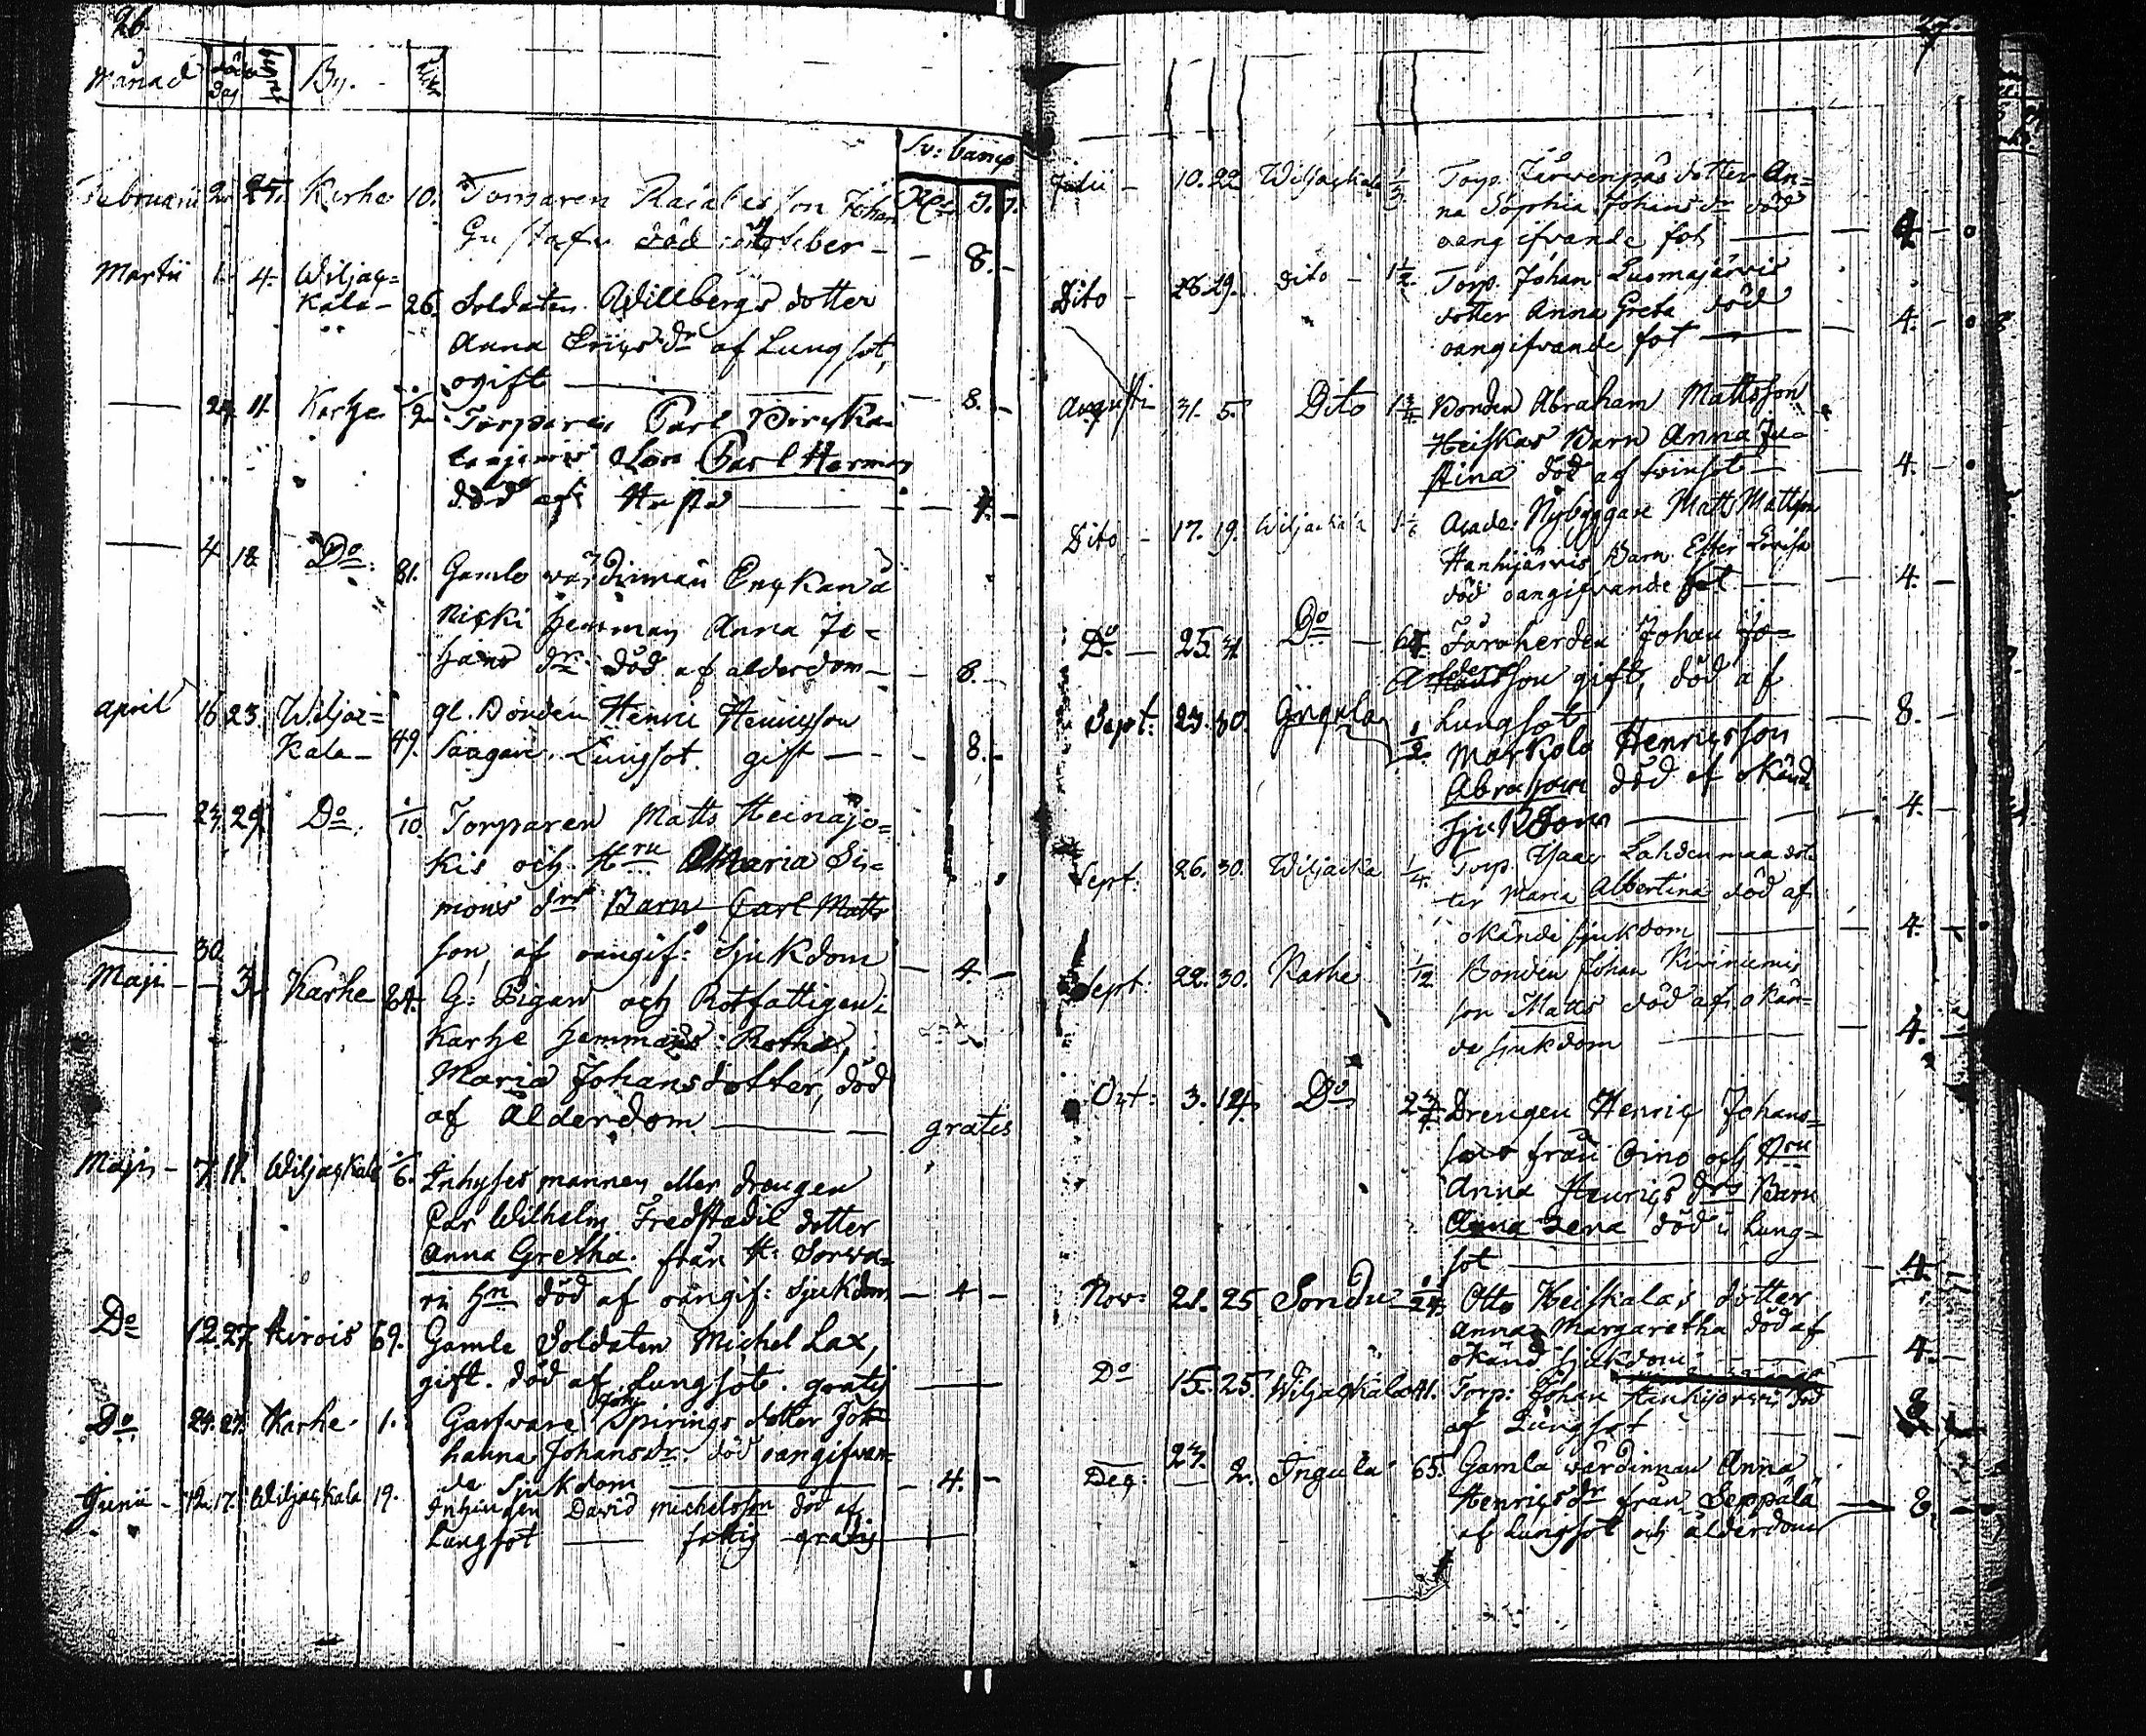 26.
Månad död dag begraf By. ålder
Sv: banco
Februarii 2. 25. Karhe 10. Torparen son Johan
Gustafs död
8.
Martii 1. 4. Wiljac=
kala 26. Soldaten Willbergs dotter
Anna Erics dr af Lungsot,
ogift 8.
24. 11. Karhe 1/2 Torparen Carl
Son Carl Herman
död af Hosta 4.
4 18 Do. 81. Gamle värdinnan Enkan å
hemman Anna Jo=
hans dr död af alderdom 8.
April 16 23. Wiljac=
kala 49. gl. Bonden Henric Henricsson
Lungsot. gift 8.
24. 29. Do. 1/10 Torparen Matts Heinäjo=
kis och Hru Maria Si=
mons drs Barn Carl Matts
son, af oangif: Sjukdom 4.
30.
Maji 3. Karhe 84. G: Pigan och Rotfattigen
Karhe hemmans Rothe,
Maria Johansdotter, död
af Ålderdom gratis
Maji 7. 11. Wiljackala 1/6. Inhyses mannen eller drengen
Car Wilhelm Fredstadii dotter
Anna Gretha. från H: Sorva=
ri hn död af oangif: Sjukdom 4
Do 12. 27 Hirvis 69. Gamle Soldaten Michel Lax,
gift. död af Lungsot. gratis
Do 24. 27. Karhe 1. Garfvare Spirings dotter Joh=
hanna Johansdr. död oangifvan=
de Sjukdom 4.
Junii 12. 17. Wiljackala 19. Inhysingen David Michelsson död af
Lungsot fattig gratis
27.
Julii 10. 22. Wiljackala 1/3 Torp. Järvenpäs dotter An=
na Sophia Johans dr död
oangifvande sot 4
Dito 26 29. dito 1 1/2. Torp. Johan Luomajärvis
dotter Anna Greta död
oangifvande sot 4.
Augusti 31. 5. Dito 1 3/4 Bonden Abraham Mattsson
Heiskas Barn Anna Ju=
stina död af tvinsot 4.
Dito 17. 19. Wiljackala Nybyggare Matts Mattsson
Hanhijärvis Barn Ester Lovisa
död oangifvande sot 4.
Do 25. 31. Do Färaherden Johan Jo=
Andersson gift, död af
Lungsot 8.
Sept: 23. 30. Ingula 1/2 Markola Henricsson
Abraham död af okänd
sjukdom 4.
Sept: 26. 30. Wiljacka 1/4. Torp. Isaac Lahdenmaa dot=
ter Maria Albertina död af
okände sjukdom 4.
Sept: 22. 30. Karhe 1/12 Bonden Johan Kiviniemis
son Matts död af okän=
de sjukdom 4.
Oct: 3. 14. Do 2 3/4 Drengen Henric Johans=
sons från Oino och Hru
Anna Henrics drs Barn
Anna Lena död i Lung=
sot 4.
Nov: 21. 25 Sondu 1/24 Otto Heiskalas dotter
Anna Margaretha död af
okänd sjukdom 4.
Do 15. 25. Wiljackala 41. Torp: Johan Hanhijärvi död
af Lungsot 8
24.
Dec: 2. Ingula 65. Gamla värdinnan Anna
Henricsdr från Seppälä
af Lungsot och ålderdom 8.